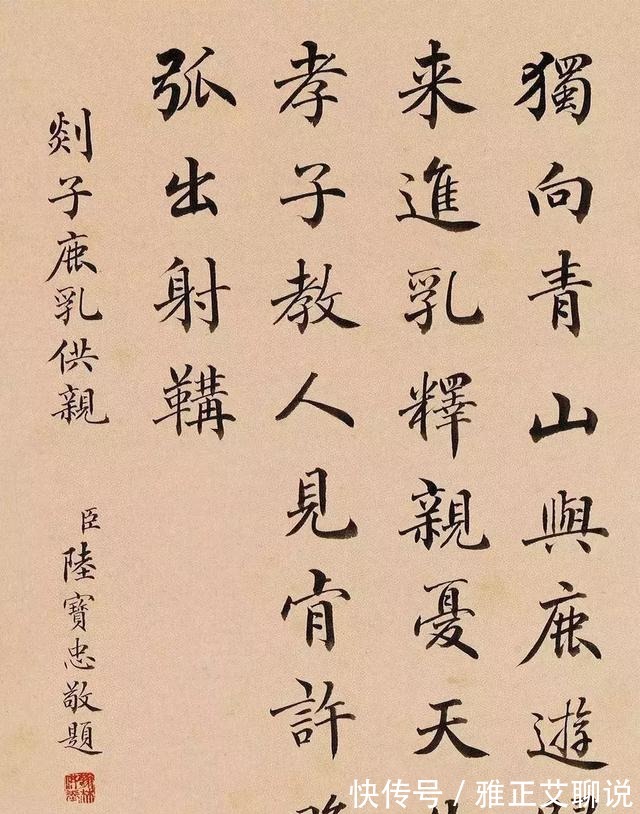 獨向青山與鹿遊
来進乳釋親憂天
孝子教人見肯許
弧出射鞲
剡子鹿乳供親
臣陸寶忠敬題
快传号/雅正艾聊说